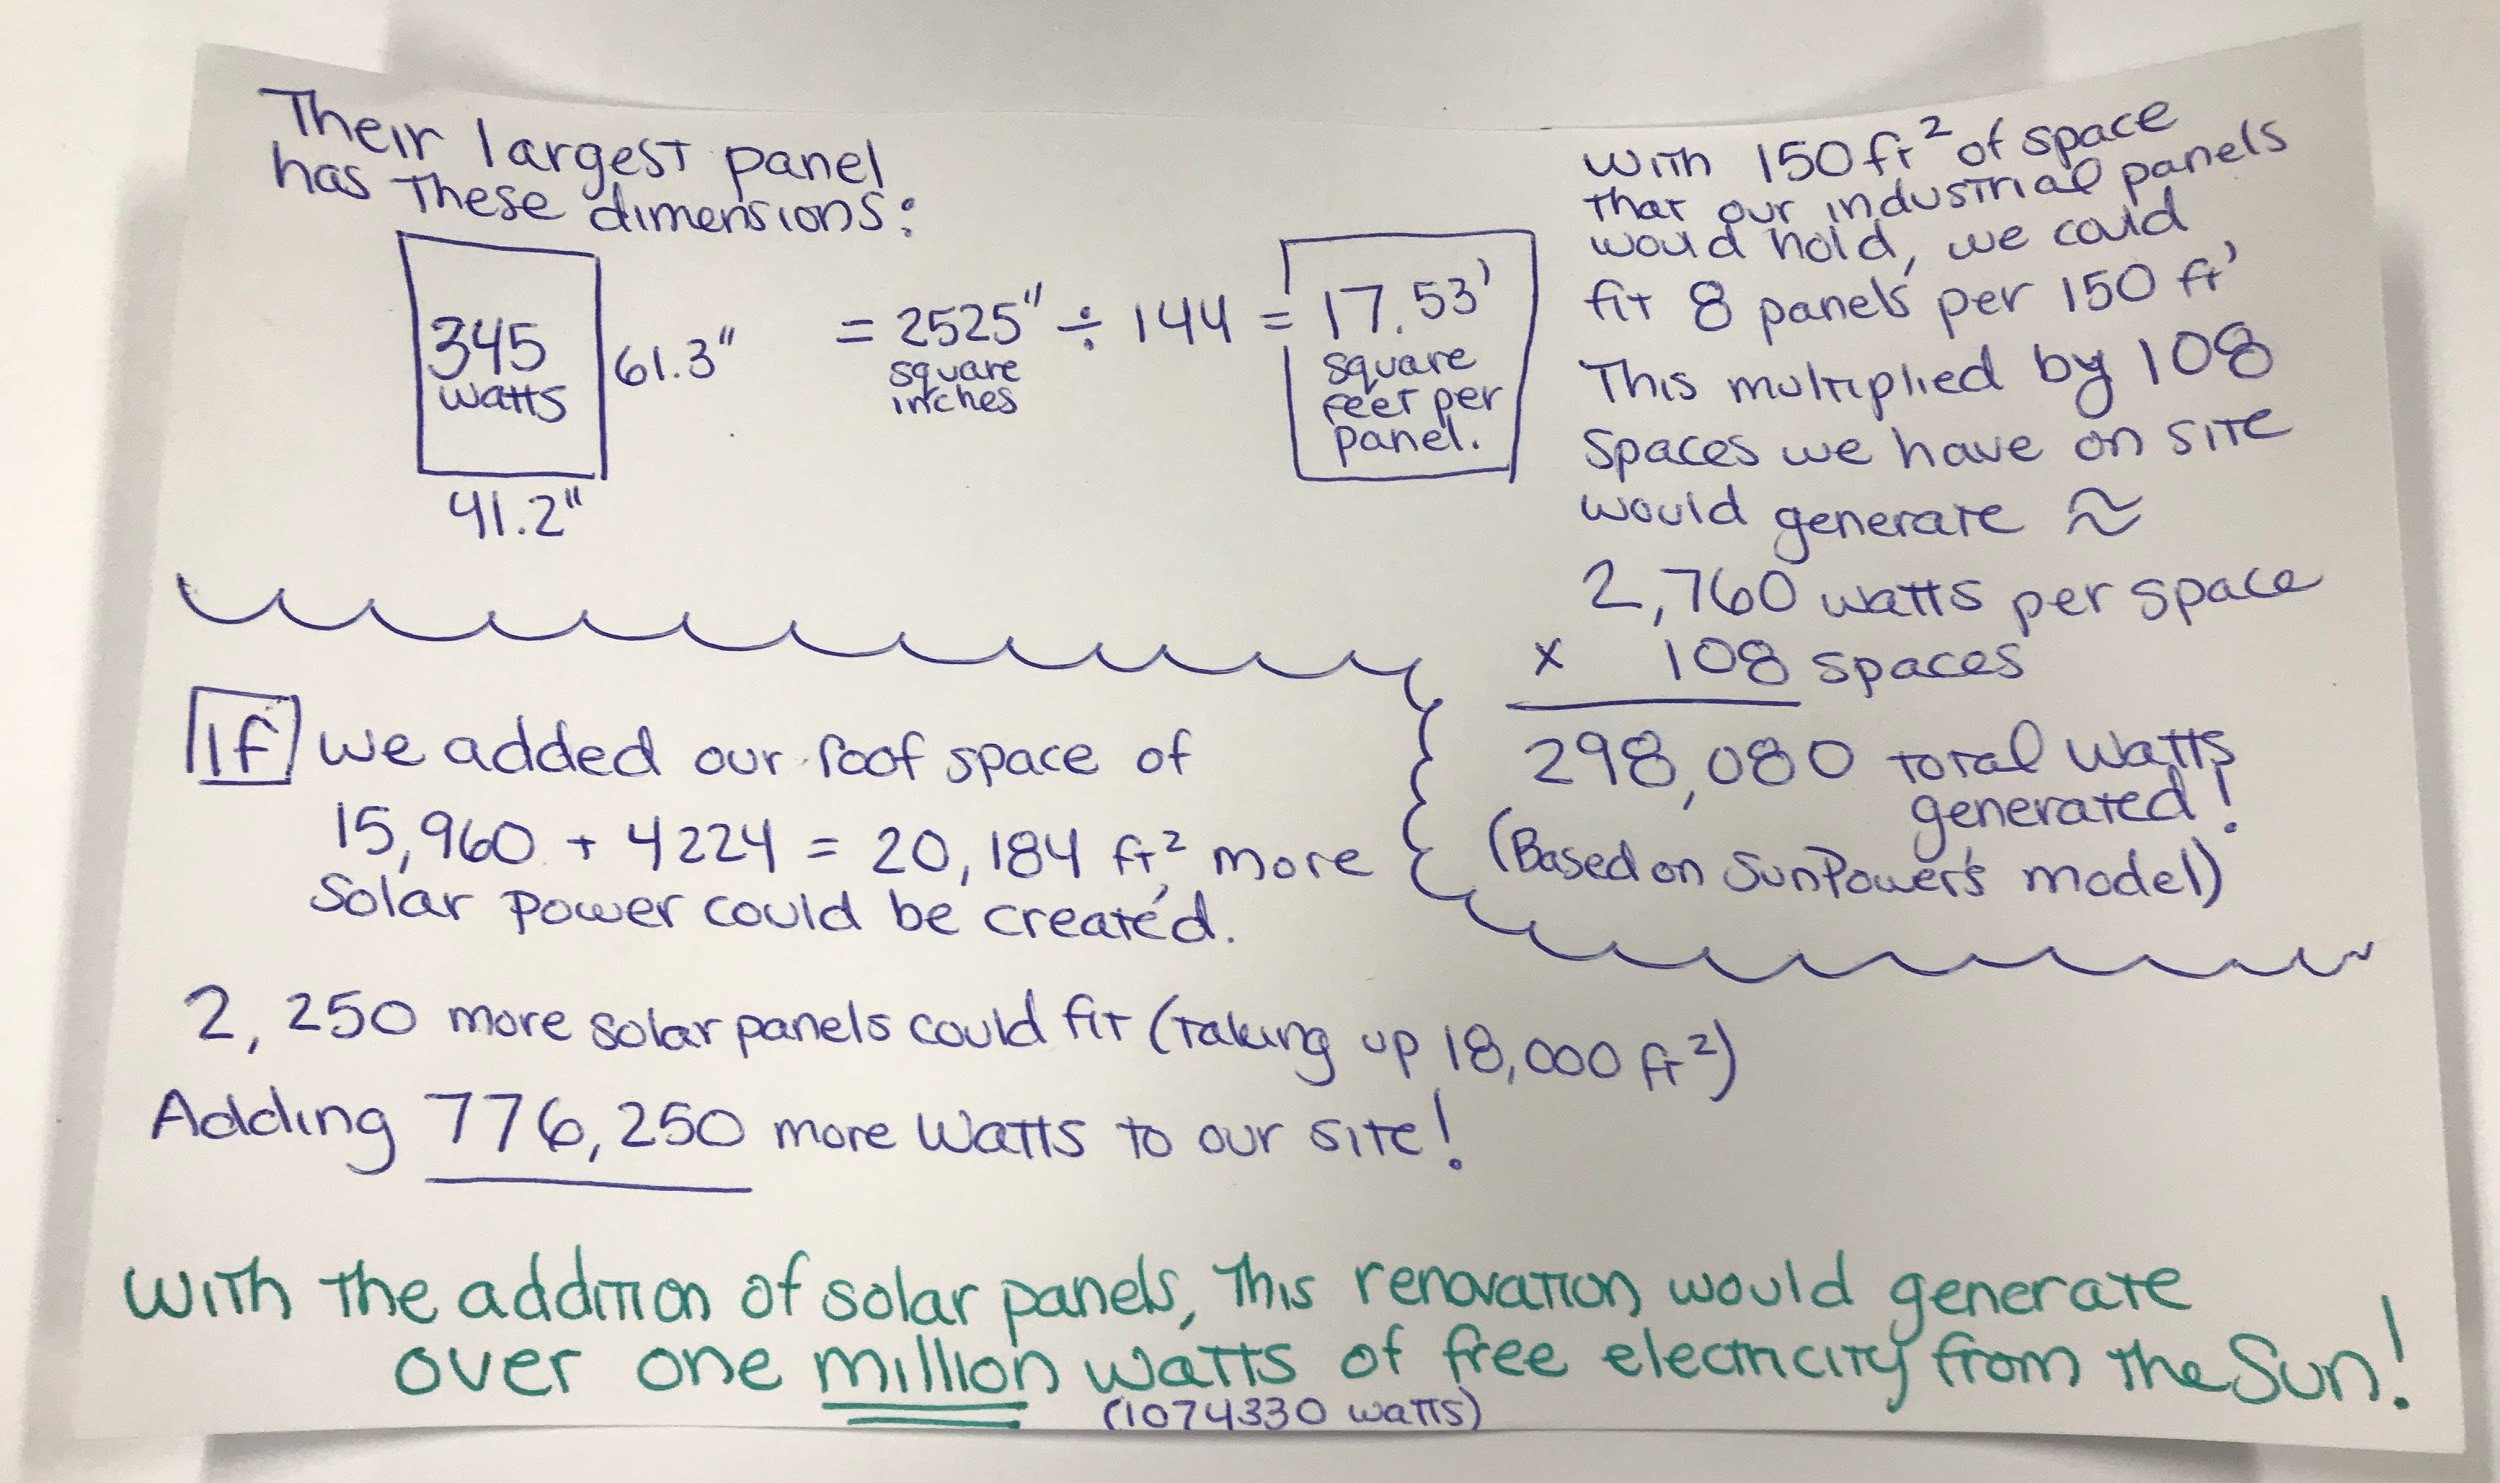 Their largest panel
has these dimensions:
345
watts
61.3"
41.2"
= 2525" ÷ 144 =
square
inches
17.53'
square
feet per
panel.
With 150 ft² of space
that our industrial panels
would hold, we could
fit 8 panels per 150 ft'
This multiplied by 108
spaces we have on site
would generate ≈
2,760 watts per space
x 108 spaces
298,080 total watts
generated!
(Based on SunPower's model)
If we added our roof space of
15,960 + 4224 = 20,184 ft², more
solar power could be created.
2,250 more solar panels could fit (taking up 18,000 ft²)
Adding 776,250 more watts to our site!
With the addition of solar panels, this renovation would generate
over one million watts of free electricity from the Sun!
(1074330 watts)